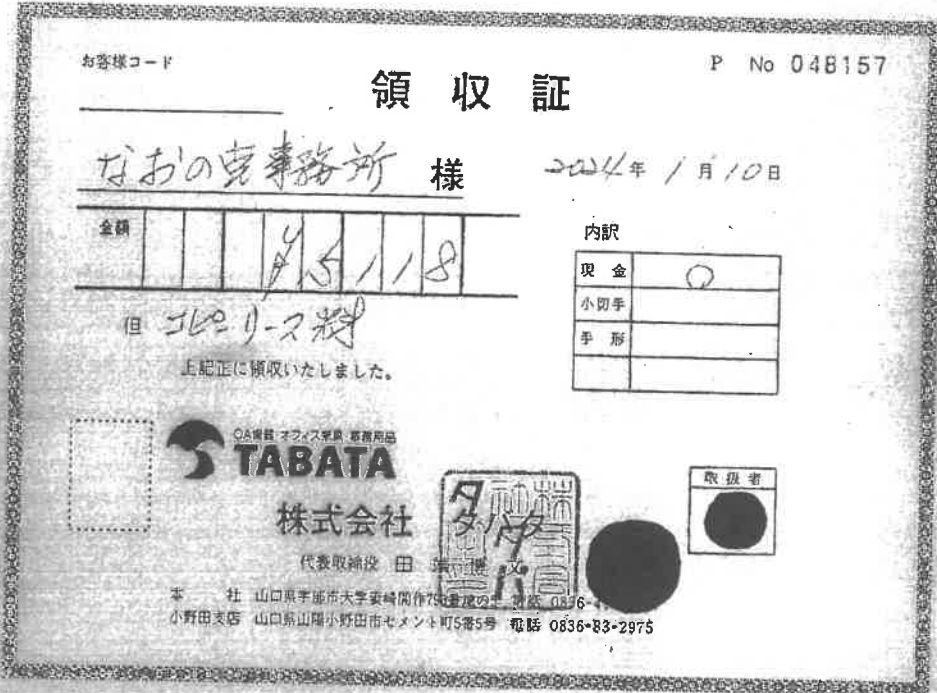 お客様コード
P No 048157
領収証
なおの宛事務所 様
2024年 1月10日
金額 ¥5118
内訳
現金 ○
小切手
手形
但 コピーリース料
上記正に領収いたしました。
OA機器 オフィス家具 事務用品
TABATA
株式会社 タバタ
取扱者
代表取締役 田
本社 山口県宇部市大字妻崎開作 電話 0836-
小野田支店 山口県山陽小野田市セメント町5番5号 電話 0836-83-2975